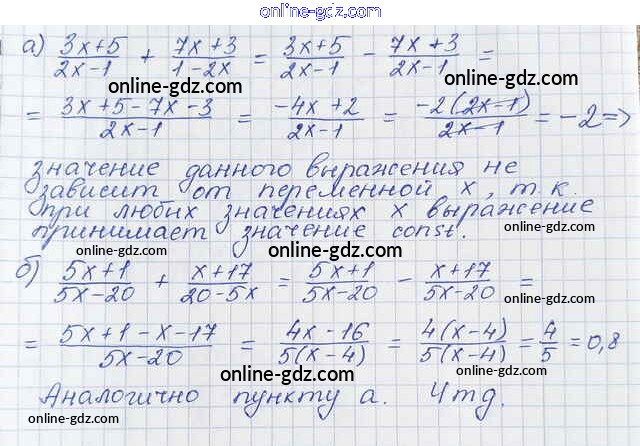 online-gdz.com
а) (3x+5)/(2x-1) + (7x+3)/(1-2x) = (3x+5)/(2x-1) - (7x+3)/(2x-1) =
online-gdz.com online-gdz.com
= (3x+5-7x-3)/(2x-1) = (-4x+2)/(2x-1) = (-2(2x-1))/(2x-1) = -2 =>
значение данного выражения не
зависит от переменной x, т.к.
при любых значениях x выражение
принимает значение const.
online-gdz.com online-gdz.com online-gdz.com
б) (5x+1)/(5x-20) + (x+17)/(20-5x) = (5x+1)/(5x-20) - (x+17)/(5x-20) =
online-gdz.com online-gdz.com
= (5x+1-x-17)/(5x-20) = (4x-16)/(5(x-4)) = (4(x-4))/(5(x-4)) = 4/5 = 0,8
online-gdz.com online-gdz.com
Аналогично пункту а. Чтд.
online-gdz.com online-gdz.com